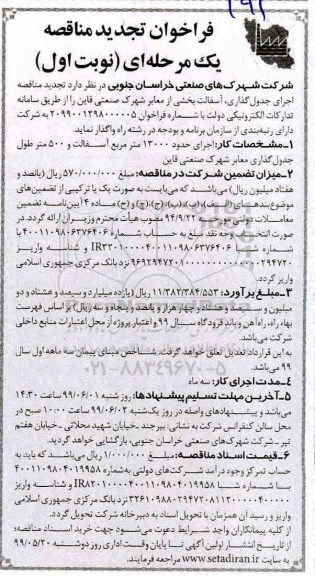 فراخوان تجدید مناقصه
یک مرحله‌ای (نوبت اول)
شرکت شهرک‌های صنعتی خراسان جنوبی در نظر دارد تجدید مناقصه
اجرای جدول‌گذاری، آسفالت بخشی از معابر شهرک صنعتی قاین را از طریق سامانه
تدارکات الکترونیکی دولت با شماره فراخوان ۲۰۹۹۰۰۱۲۹۸۰۰۰۰۰۵ به شرکت
دارای رتبه‌بندی از سازمان برنامه و بودجه در رشته راه واگذار نماید.
۱-مشخصات کار: اجرای حدود ۱۳۰۰۰ متر مربع آسفالت و ۵۰۰ متر طول
جدول‌گذاری معابر شهرک صنعتی قاین
۲-میزان تضمین شرکت در مناقصه: مبلغ ۵۷۰/۰۰۰/۰۰۰ ریال (پانصد و
هفتاد میلیون ریال) می‌باشد که می‌بایست به صورت یک یا ترکیبی از تضمین‌های
موضوع بندهای (الف)، (ب)، (پ)، (ج)، (چ) و (ح) ماده ۴ آیین‌نامه تضمین
معاملات دولتی مورخ ۹۴/۹/۲۲ مصوب هیأت محترم وزیران ارائه گردد. در
صورت انتخاب وجه نقد مبلغ به حساب شماره ۴۰۰۱۱۰۹۸۰۶۳۷۶۴۰۶ با
شماره شبا و شناسه واریز
نزد بانک مرکزی جمهوری اسلامی
واریز گردد.
۳-مبلغ برآورد: ۱۱/۳۸۲/۳۸۴/۵۵۳ ریال (یازده میلیارد و سیصد و هشتاد و دو
میلیون و سیصد و هشتاد و چهار هزار و پانصد و پنجاه و سه ریال) بر اساس فهرست
بهاء راه، راه‌آهن و باند فرودگاه سال ۹۹ و اعتبار پروژه از محل اعتبارات منابع داخلی
شرکت می‌باشد.
به این قرارداد تعدیل تعلق خواهد گرفت. شاخص مبنای پیمان سه ماهه اول سال
۹۹ می‌باشد.
۴-مدت اجرای کار: سه ماه
۵-آخرین مهلت تسلیم پیشنهادها: روز شنبه ۹۹/۰۶/۰۱ ساعت ۱۴:۳۰
می‌باشد و پیشنهادهای واصله در روز یک‌شنبه ۹۹/۰۶/۰۲ ساعت ۱۰:۰۰ صبح در
محل سالن کنفرانس شرکت به نشانی: بیرجند-خیابان شهید محلاتی - خیابان هفتم
تیر - شرکت شهرک‌های صنعتی خراسان جنوبی، بازگشایی خواهد گردید.
۶-قیمت اسناد مناقصه: مبلغ ۱/۰۰۰/۰۰۰ ریال می‌باشد که باید به
حساب تمرکز وجوه درآمد شرکت‌های دولتی به شماره ۴۰۰۱۱۰۹۸۰۴۰۱۹۹۵۸
با شماره شبا و شناسه واریز
نزد بانک مرکزی جمهوری اسلامی
واریز و رسید آن همزمان با تحویل اسناد به دبیرخانه شرکت تحویل گردد.
از کلیه پیمانکاران واجد شرایط دعوت می‌شود جهت خرید اسناد مناقصه؛
از تاریخ انتشار اولین آگهی تا پایان وقت اداری روز دوشنبه ۹۹/۰۵/۲۰
به سایت www.setadiran.ir مراجعه فرمایند.
۰۲۱-۸۸۳۴۹۶۷۰-۵